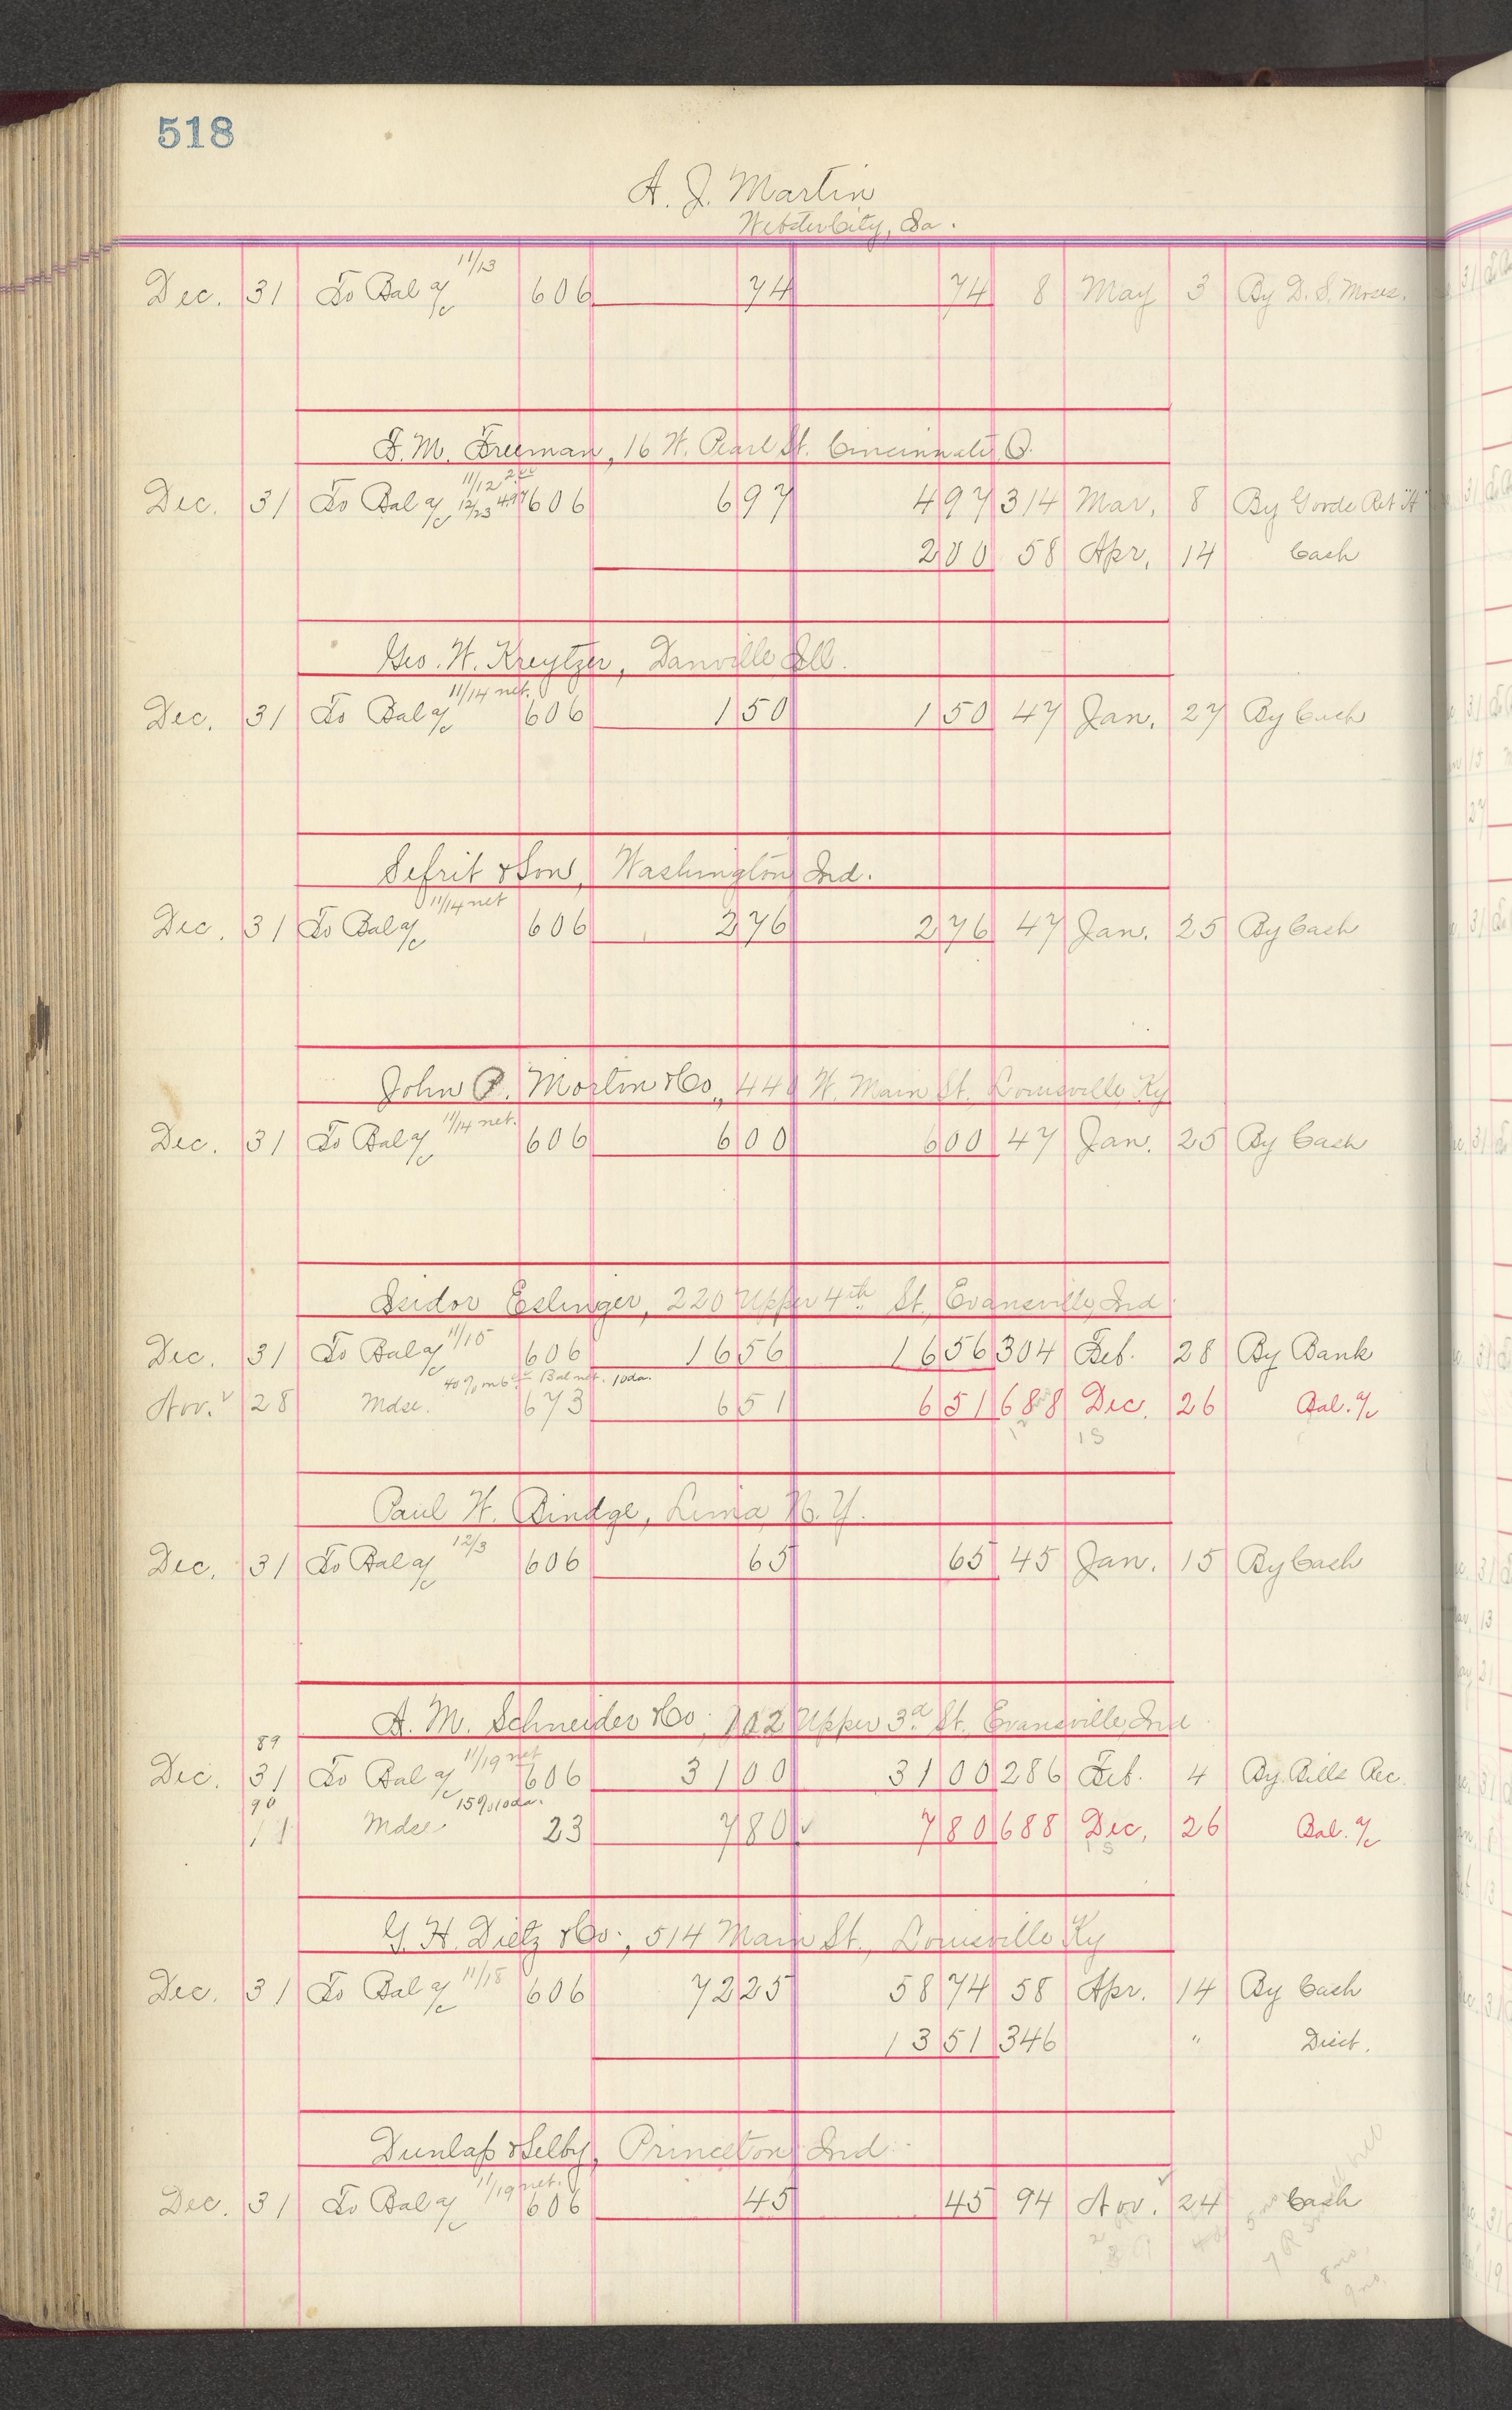 518
A. J. Martin
Webster City, Ia.
Dec. 31 To Bal a/c 11/13 606 74 74 8 May 3 By D. S. Moses.
F. M. Freeman, 16 W. Pearl St. Cincinnati, O.
11/12 2.00
Dec. 31 To Bal a/c 12/23 4.97 606 6 97 4 97 314 Mar. 8 By Goods Ret "A"
2 00 58 Apr. 14 Cash
Geo. W. Kreytzer, Danville Ill.
Dec. 31 To Bal a/c 11/14 net. 606 1 50 1 50 47 Jan. 27 By Cash
Sefrit & Son, Washington Ind.
Dec. 31 To Bal a/c 11/14 net 606 2 76 2 76 47 Jan. 25 By Cash
John P. Morton & Co., 440 W. Main St. Louisville, Ky
Dec. 31 To Bal a/c 11/14 net. 606 6 00 6 00 47 Jan. 25 By Cash
Isidor Eslinger, 220 Upper 4th St., Evansville, Ind.
Dec. 31 To Bal a/c 11/15 606 16 56 16 56 304 Feb. 28 By Bank
40% on 6.00 Bal net. 10 da.
Nov. 28 Mdse. 673 6 51 6 51 688 Dec. 26 Bal. a/c
Paul W. Bindge, Lima, N. Y.
Dec. 31 To Bal a/c 12/3 606 65 65 45 Jan. 15 By Cash
A. M. Schneider & Co. 102 Upper 3d St. Evansville, Ind.
89
Dec. 31 To Bal a/c 11/19 net 606 31 00 31 00 286 Feb. 4 By Bills Rec.
90 15% 10 da.
Mdse. 23 7 80 ✓ 7 80 688 Dec. 26 Bal. a/c
G. H. Dietz & Co., 514 Main St., Louisville Ky
Dec. 31 To Bal a/c 11/18 606 72 25 58 74 58 Apr. 14 By Cash
13 51 346 " Disct.
Dunlap & Selby, Princeton Ind.
Dec. 31 To Bal a/c 11/19 net. 606 45 45 94 Nov. 24 Cash
8 mo.
9 mo.